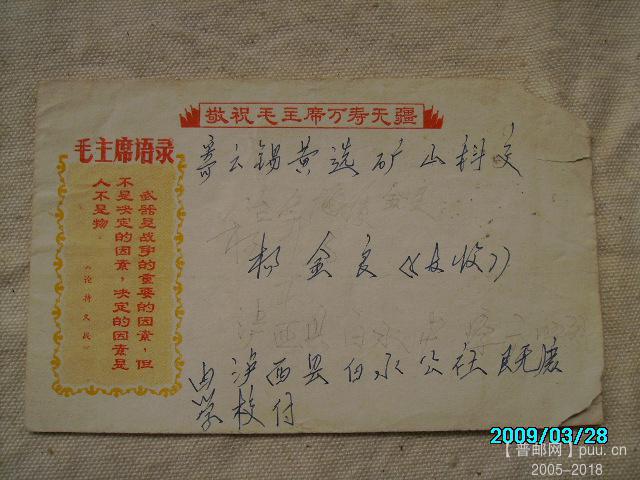 敬祝毛主席万寿无疆
毛主席语录
武器是战争的重要的因素，但
不是决定的因素，决定的因素是
人不是物。
《论持久战》
寄云锡黄选矿山科交
杨金良《收》
由泸西县白水公社既庶
学校付
2009/03/28
【普邮网】puu.cn
2005-2018